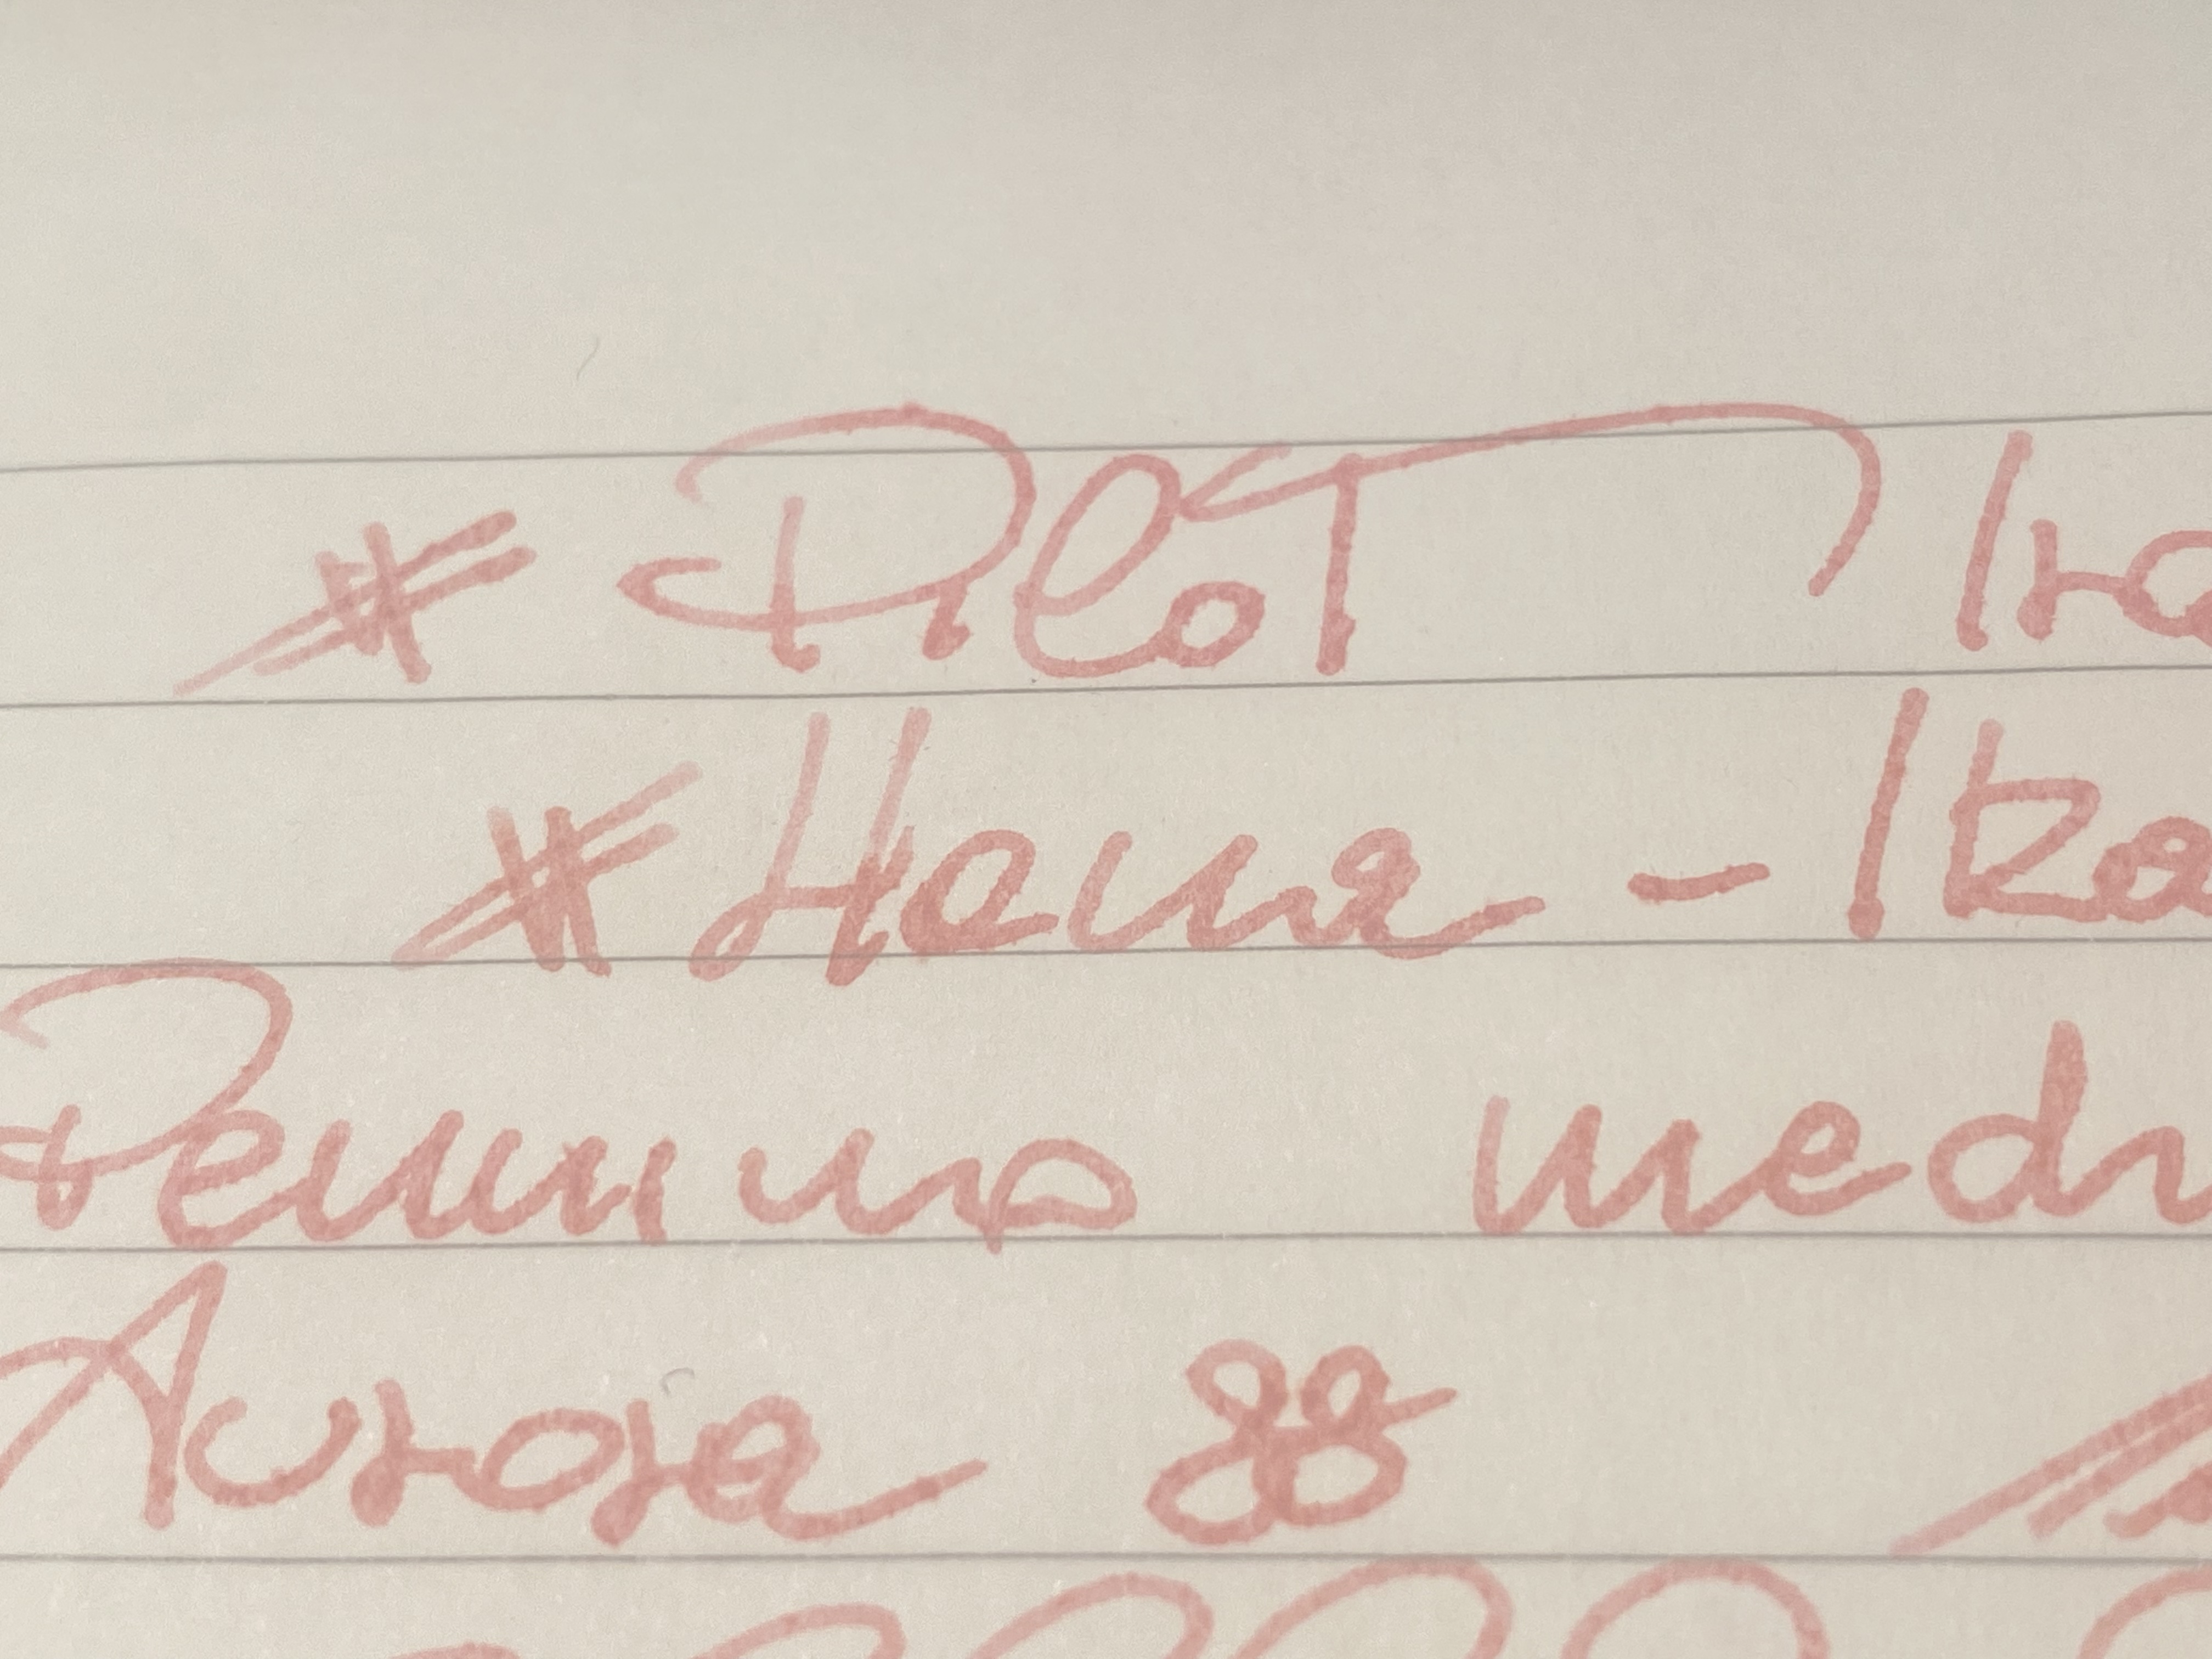 # Pilot Iro
# Hana - Ika
Pennino medi
Aurora 88